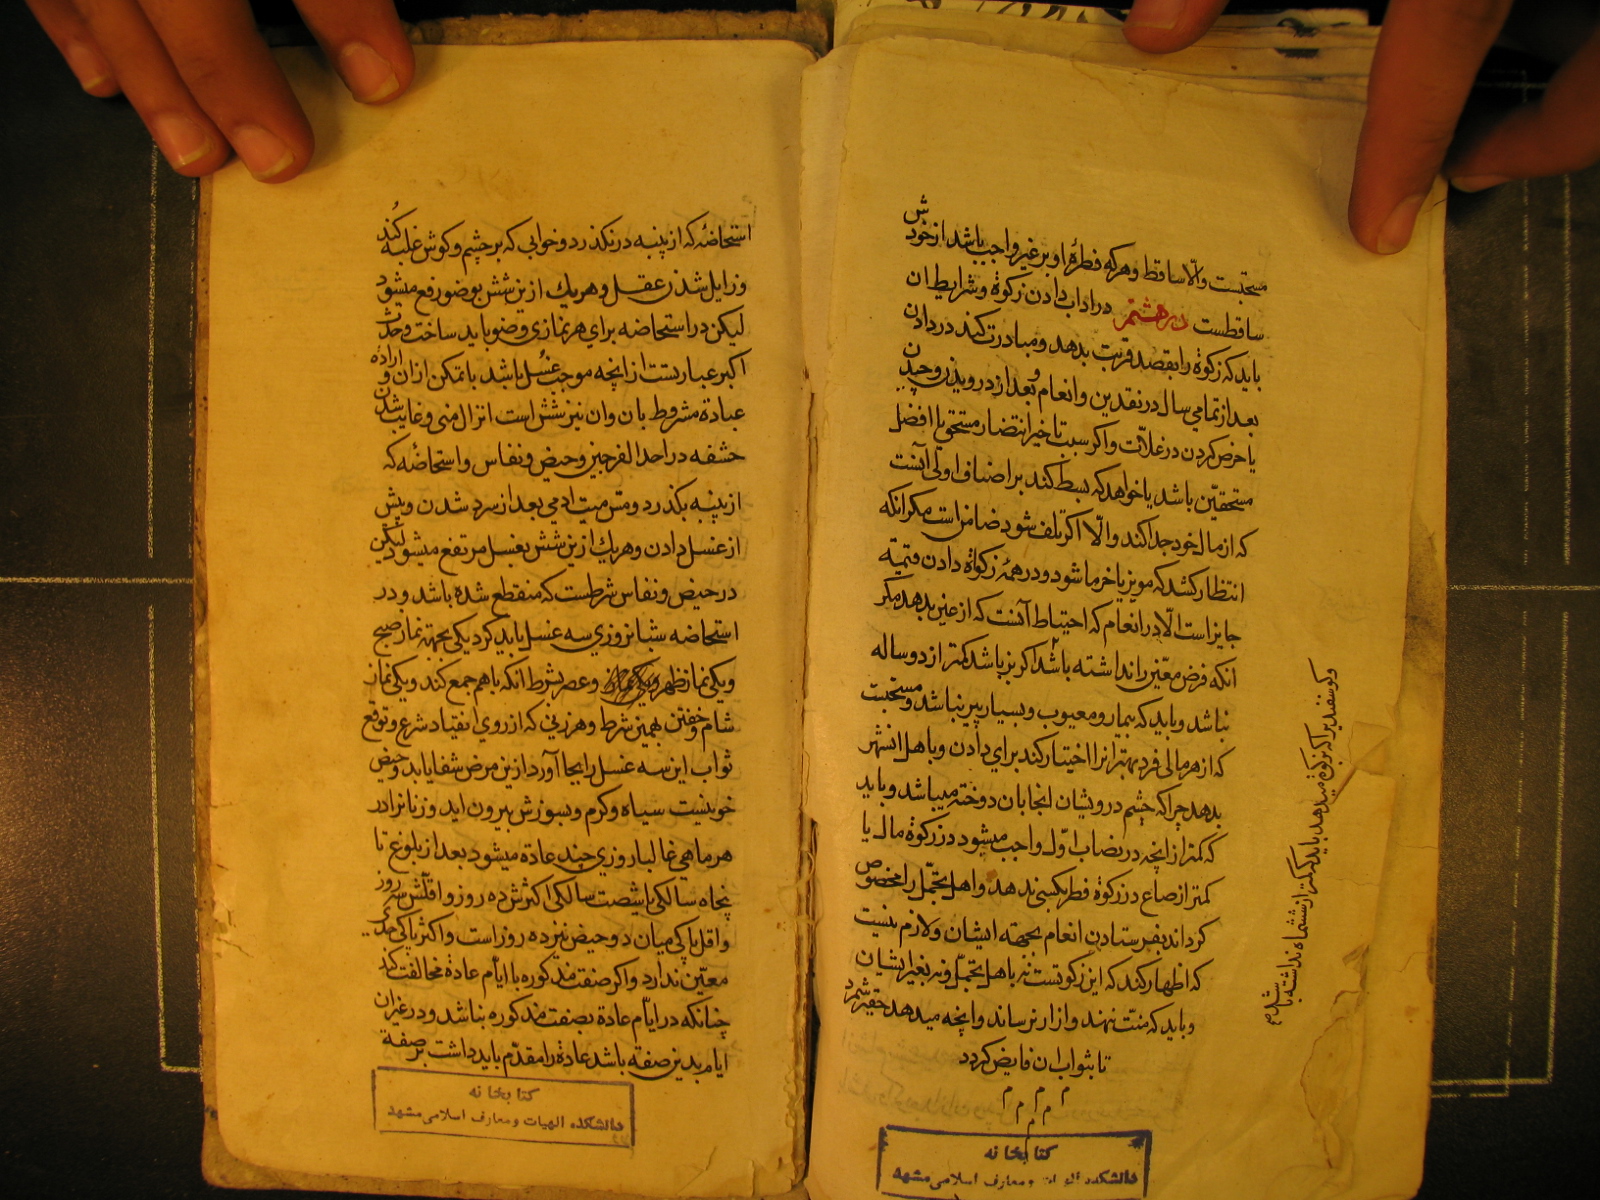 مستحبّست والّا ساقط وهركه فطرهٔ او بر غير واجب باشد از خودش
ساقطست در هشتم در اداب دادن زكوة و شرايط ان
بايد كه زكوة را بقصد قربت بدهد و مبادرت كند در دادن
بعد از تمامي سال در نقدين و انعام و بعد از درويدن و چيدن
يا خرص كردن در غلات و اكر سبب تاخير انتضار مستحق يا افضل
مستحقين باشد يا خواهد كه بسط كند بر اصناف اولى آنست
كه از مال خود جدا كند والّا اكر تلف شود ضامن است مكر انكه
انتظار كشد كه مويز يا خرما شود و در همهٔ زكوة دادن قيمة
جايز است الّا در انعام كه احتياط آنست كه از عين بدهد مكر
انكه فرض معيّن را نداشته باشد اكر بز باشد كمتر از دو ساله
نباشد و بايد كه بيمار و معيوب و بسيار پير نباشد و مستحبست
كه از هر مالى فرد بهتر انرا اختيار كند براي دادن و باهل انشهر
بدهد چرا كه چشم درويشان انجا بان دوخته ميباشد و بايد
كه كمتر از انچه در نصاب اول واجب ميشود در زكوة مال يا
كمتر از صاع در زكوة فطر بكسى ندهد و اهل تجمّل را مخصوص
كرداند بفرستادن انعام بجهته ايشان و لازم نيست
كه اظهار كند كه اين زكوتست نه باهل تجمّل و نه بغير ايشان
و بايد كه منّت ننهد و ازار نرساند و انچه ميدهد حقير شمرد
تا بثواب ان فايض كردد
م م م م م
وكوسفند را كه بزكوة ميدهد بايد كه كمتر از ششماه نداشته باشد صح
كتابخانه
دانشكده الهيات ومعارف اسلامى مشهد
استحاضهٔ كه از پنبه درنكذرد و خوابى كه بر چشم و كوش غلبه كند
و زايل شدن عقل و هريك ازين شش بوضو رفع ميشود
ليكن در استحاضه براي هر نمازي وضو بايد ساخت و حدث
اكبر عبارتست از انچه موجب غسل باشد با تمكن از ان و اراده
عبادة مشروط بان و ان نيز شش است انزال منى و غايب شدن
حشفه در احد الفرجين و حيض و نفاس و استحاضهٔ كه
از پنبه بكذرد و مسّ ميت ادمي بعد از سرد شدن و پيش
از غسل دادن و هريك ازين شش بغسل مرتفع ميشود ليكن
در حيض و نفاس شرطست كه منقطع شده باشد و در
استحاضه شبانروزي سه غسل بايد كرد يكى بجهته نماز صبح
و يكى نماز ظهر و عصر بشرط انكه باهم جمع كند و يكى نماز
شام و خفتن بهمين شرط و هر زنى كه از روي انقياد شرع و توقع
ثواب اين سه غسل را بجا آورد ازين مرض شفا يابد و حيض
خونيست سياه و كرم و بسوزش بيرون ايد و زنانرا در
هر ماهي غالبا روزي چند عادة ميشود بعد از بلوغ تا
پنجاه سالكى يا شصت سالكى اكثرش ده روز و اقلّش سه روز
و اقل پاكي ميان دو حيض نيز ده روز است و اكثر پاكى حدّى
معيّن ندارد و اكر صفت مذكوره با ايام عادة مخالفت كند
چنانكه در ايّام عادة بصفت مذكوره نباشد و در غير ان
ايام بدين صفة باشد عادة را مقدّم بايد داشت بر صفة
كتابخانه
دانشكده الهيات ومعارف اسلامى مشهد